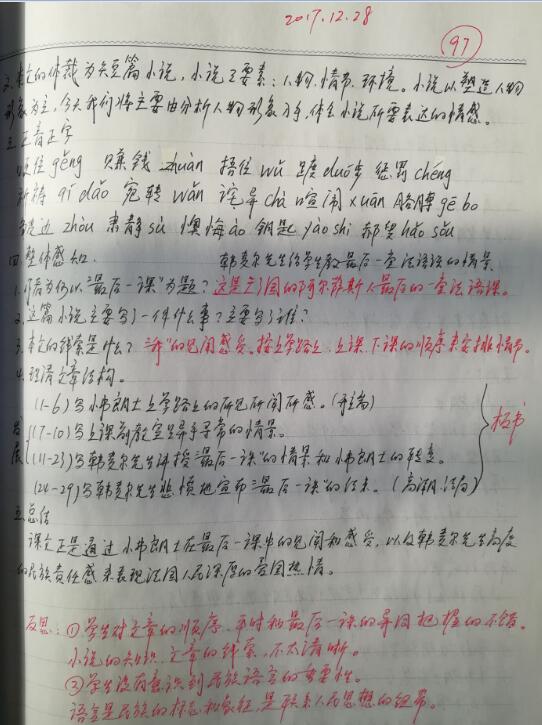 2017.12.28
97
2.本文的体裁为短篇小说,小说三要素:人物、情节、环境。小说以塑造人物
形象为主,今天我们将主要由分析人物形象入手,体会小说所要表达的情感。
三.正音正字
哽住gěng 赚钱zhuàn 捂住wǔ 踱duó步 惩罚chéng
祈祷qí dǎo 宛转wǎn 诧异chà 喧闹xuān 胳膊gē bo
zhòu 肃静sù 懊悔ào 钥匙yào shi 郝叟hǎo sǒu
四.整体感知. 韩麦尔先生给学生教最后一堂法语课的情景
1.作者为何以“最后一课”为题?这是亡了国的阿尔萨斯人最后的一堂法语课。
2.这篇小说主要写了一件什么事?主要写了谁?
3.本文的线索是什么?“我”的见闻感受。按上学路上、上课、下课的顺序来安排情节。
4.理清文章结构。
(1-6)写小弗郎士上学路上的所见所闻所感。(开端)
发展
(7-10)写上课前教室里异乎寻常的情景。
(11-23)写韩麦尔先生讲授“最后一课”的情景和小弗郎士的转变。
(24-29)写韩麦尔先生悲愤地宣布“最后一课”的结束。(高潮、结局)
板书
五.总结
课文正是通过小弗郎士在最后一课中的见闻和感受,以及韩麦尔先生高度
的民族责任感来表现法国人民深厚的爱国热情。
反思:①学生对文章的顺序、平时和最后一课的异同把握的不错。
小说的知识、文章的线索,不太清晰。
③学生没有意识到民族语言的重要性。
语言是民族的标志和象征,是联系人民思想的纽带。